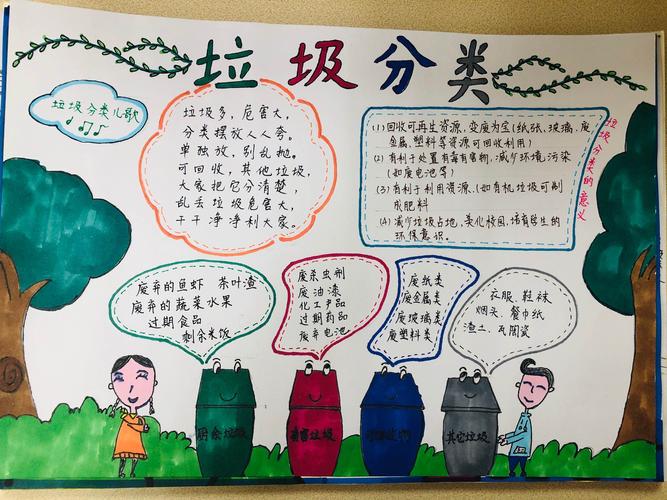 垃圾分类
垃圾分类儿歌
垃圾多,危害大,
分类摆放人人夸。
单独放,别乱抛。
可回收,其他垃圾,
大家把它分清楚,
乱丢垃圾危害大,
干干净净利大家。
(1)回收可再生资源,变废为宝(纸张、玻璃、废
金属、塑料等资源可回收利用)
(2)有利于处置有毒有害物,减少环境污染
(如废电池等)
(3)有利于利用资源(如有机垃圾可制
成肥料
(4)减少垃圾占地、美化校园、培育学生的
环保意识。
垃圾分类的意义
废弃的鱼虾 茶叶渣
废弃的蔬菜水果
过期食品
剩余米饭
废杀虫剂
废油漆
化工产品
过期药品
废弃电池
废纸类
废金属类
废玻璃类
废塑料类
衣服、鞋袜
烟头、餐巾纸
渣土、瓦陶瓷
厨余垃圾
有害垃圾
其它垃圾